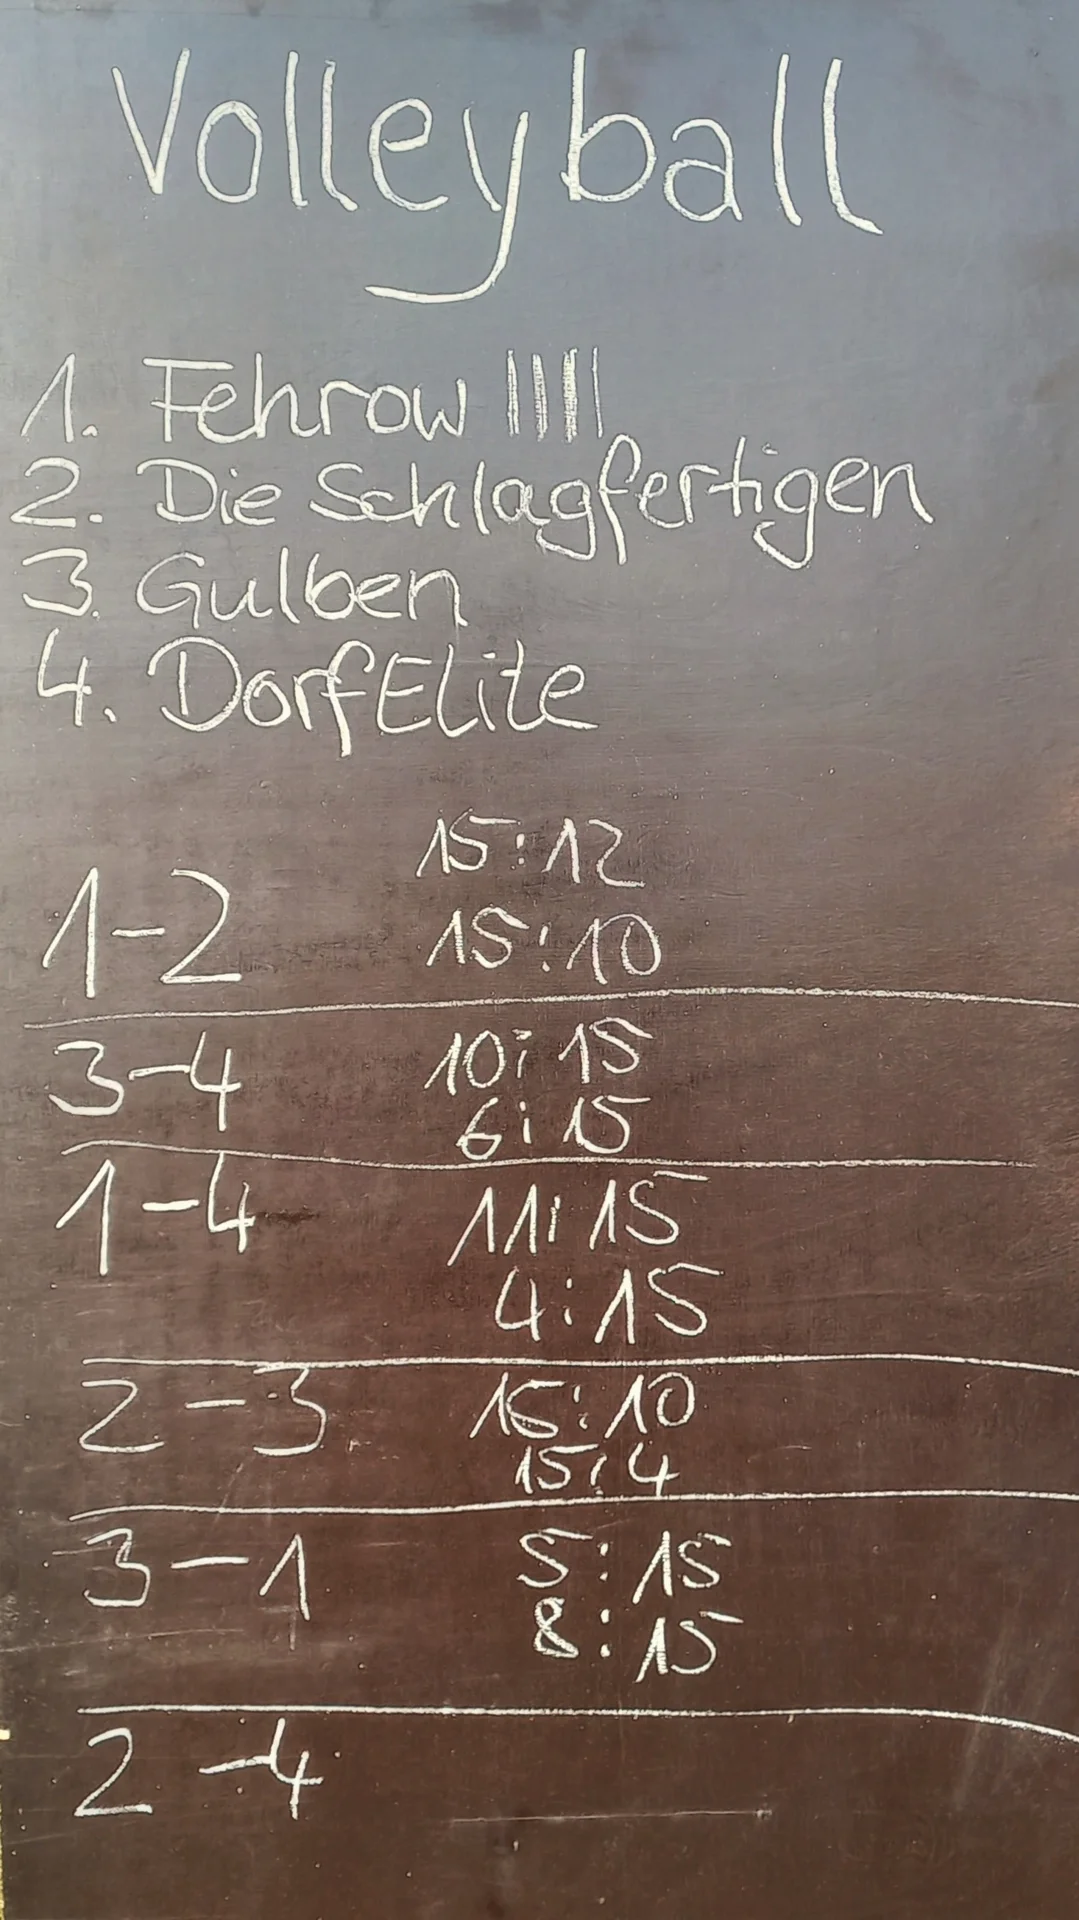 Volleyball
1. Fehrow |||||
2. Die Schlagfertigen
3. Gulben
4. DorfElite
15:12
1-2 15:10
3-4 10:15
6:15
1-4 11:15
4:15
2-3 15:10
15:4
3-1 5:15
8:15
2-4